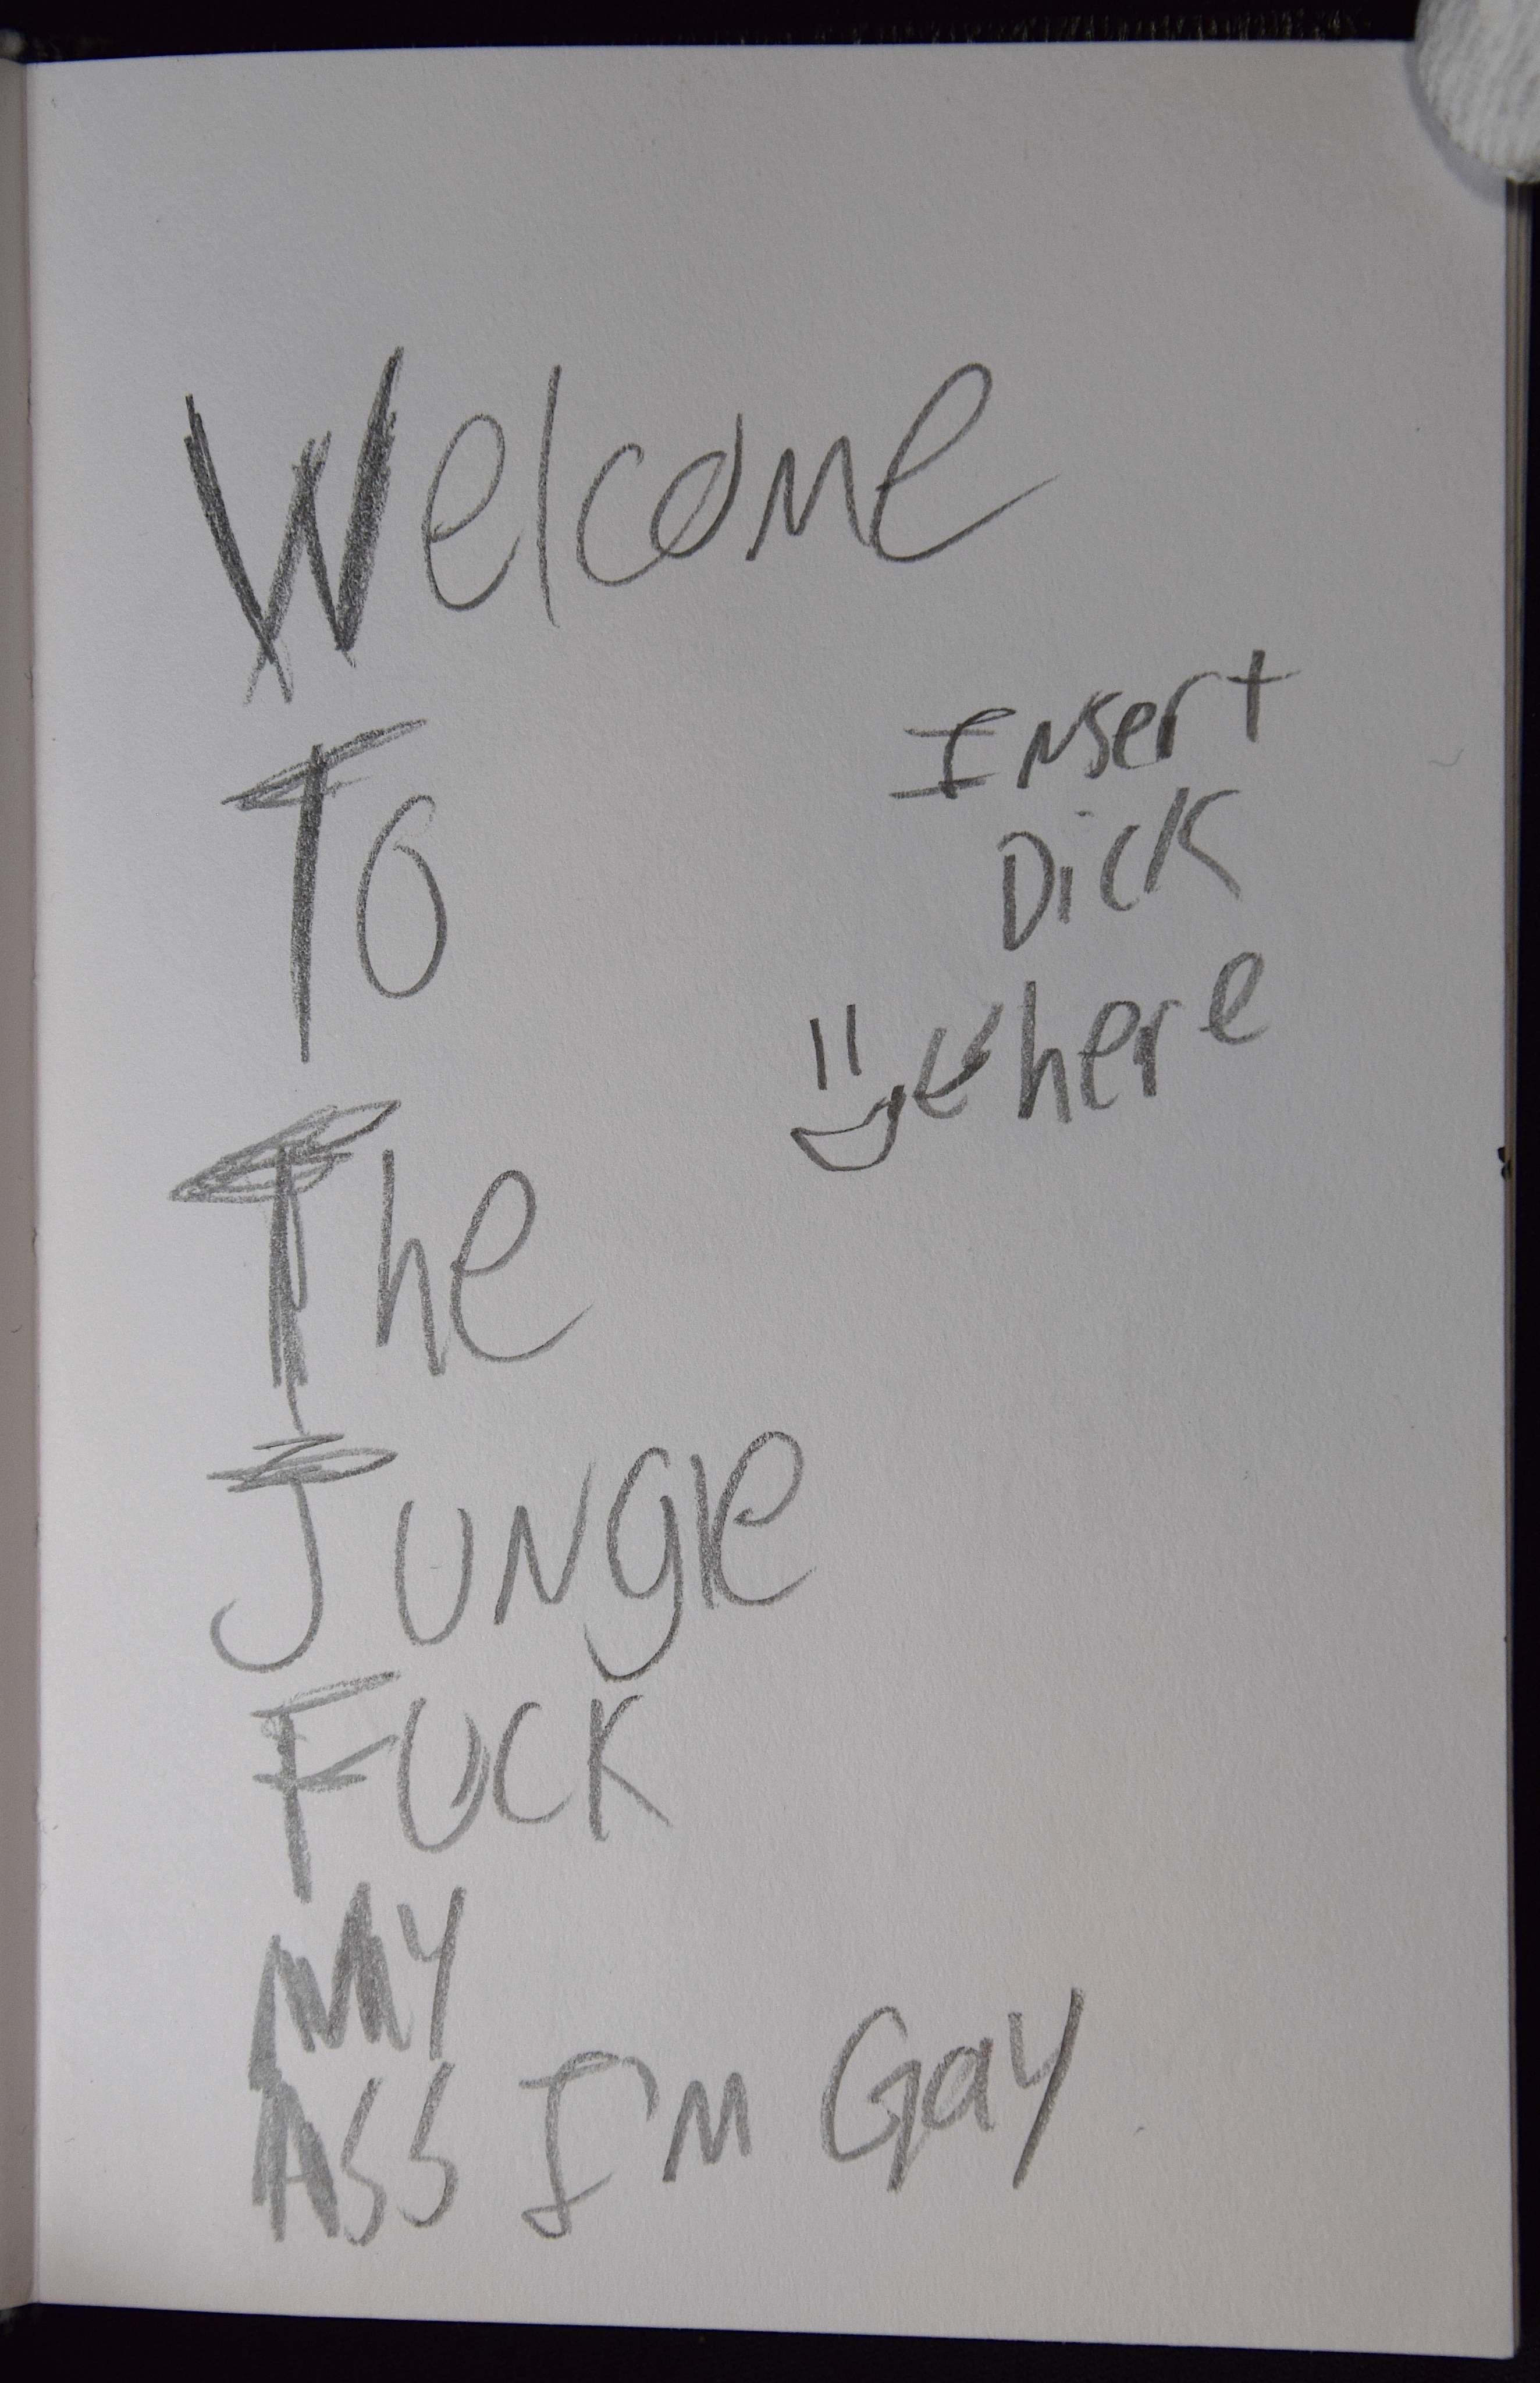 Welcome
To
The
Jungle
Fuck
My
Ass I'm Gay
Insert
Dick
here